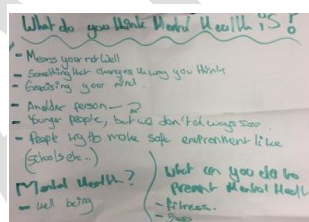 What do you think Mental Health is?
- Means your not well
- Something that changes the way you think
- Exercising your mind.
- Another person — ?
- Younger people, but we don't always see
- People try to make safe environment like
(schools etc..)
Mental Health?
- well being
What can you do to
prevent Mental Heal
- fitness.